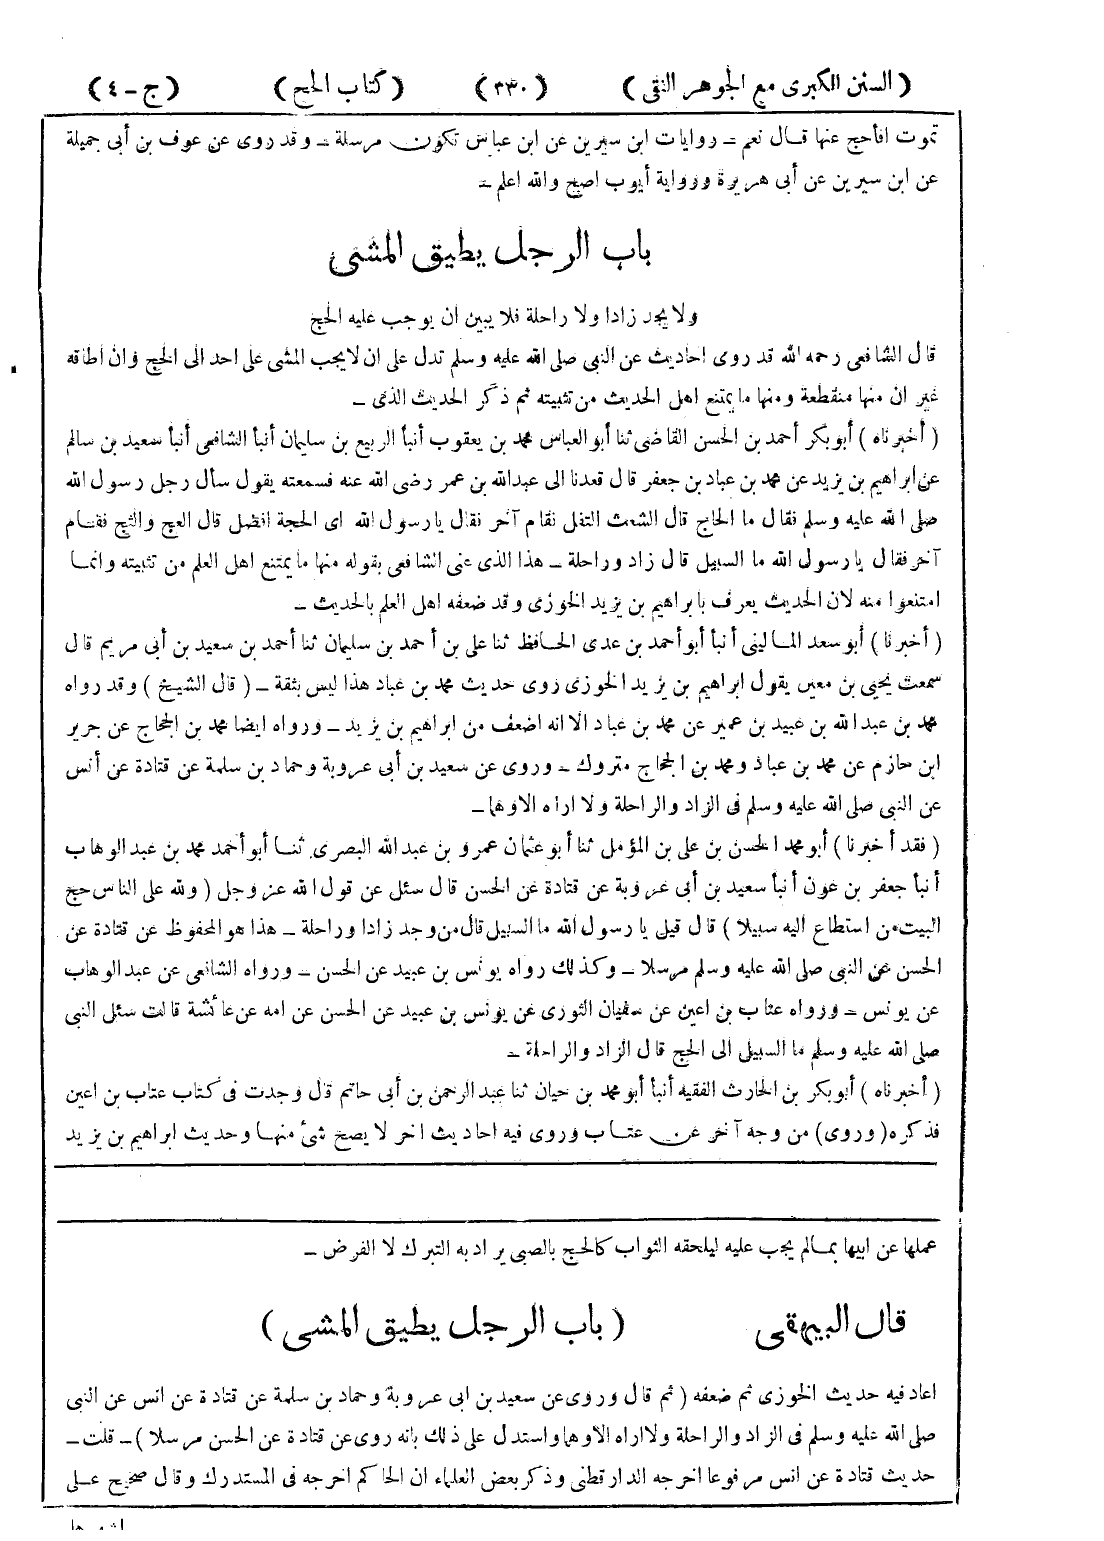 ( السنن الكبرى مع الجوهر النقى ) ( ٣٣٠ ) ( كتاب الحج ) ( ج - ٤ )
تموت افأحج عنها قال نعم - روايات ابن سيرين عن ابن عباس تكون مرسلة - وقد روى عن عوف بن أبى جميلة
عن ابن سيرين عن أبى هريرة ورواية أيوب اصح والله اعلم -
باب الرجل يطيق المشى
ولا يجد زادا ولا راحلة فلا يبين ان يوجب عليه الحج
قال الشافعى رحمه الله قد روى احاديث عن النبى صلى الله عليه وسلم تدل على ان لا يجب المشى على احد الى الحج وان اطاقه
غير ان منها منقطعة ومنها ما يمتنع اهل الحديث من تثبيته ثم ذكر الحديث الذى -
( أخبرناه ) أبو بكر أحمد بن الحسن القاضى ثنا أبو العباس محمد بن يعقوب أنبأ الربيع بن سليمان أنبأ الشافعى أنبأ سعيد بن سالم
عن ابراهيم بن يزيد عن محمد بن عباد بن جعفر قال قعدنا الى عبدالله بن عمر رضى الله عنه فسمعته يقول سأل رجل رسول الله
صلى الله عليه وسلم فقال ما الحاج قال الشعث التفل فقام آخر فقال يا رسول الله اى الحجة افضل قال العج والثج فقام
آخر فقال يا رسول الله ما السبيل قال زاد وراحلة - هذا الذى عنى الشافعى بقوله منها ما يمتنع اهل العلم من تثبيته وانما
امتنعوا منه لان الحديث يعرف بابراهيم بن يزيد الخوزى وقد ضعفه اهل العلم بالحديث -
( أخبرنا ) أبو سعد المالينى أنبأ أبو أحمد بن عدى الحافظ ثنا على بن أحمد بن سليمان ثنا أحمد بن سعيد بن أبى مريم قال
سمعت يحيى بن معين يقول ابراهيم بن يزيد الخوزى روى حديث محمد بن عباد هذا ليس بثقة - ( قال الشيخ ) وقد رواه
محمد بن عبد الله بن عبيد بن عمير عن محمد بن عباد الا انه اضعف من ابراهيم بن يزيد - ورواه ايضا محمد بن الحجاج عن جرير
ابن حازم عن محمد بن عباد ومحمد بن الحجاج متروك - وروى عن سعيد بن أبى عروبة وحماد بن سلمة عن قتادة عن أنس
عن النبى صلى الله عليه وسلم فى الزاد والراحلة ولا اراه الا وهما -
( فقد أخبرنا ) أبو محمد الحسن بن على بن المؤمل ثنا أبو عثمان عمرو بن عبد الله البصرى ثنا أبو أحمد محمد بن عبد الوهاب
أنبأ جعفر بن عون أنبأ سعيد بن أبى عروبة عن قتادة عن الحسن قال سئل عن قول الله عز وجل ( ولله على الناس حج
البيت من استطاع اليه سبيلا ) قال قيل يا رسول الله ما السبيل قال من وجد زادا وراحلة - هذا هو المحفوظ عن قتادة عن
الحسن عن النبى صلى الله عليه وسلم مرسلا - وكذلك رواه يونس بن عبيد عن الحسن - ورواه الشافعى عن عبد الوهاب
عن يونس - ورواه عتاب بن اعين عن سفيان الثورى عن يونس بن عبيد عن الحسن عن امه عن عائشة قالت سئل النبى
صلى الله عليه وسلم ما السبيل الى الحج قال الزاد والراحلة -
( أخبرناه ) أبو بكر بن الحارث الفقيه أنبأ أبو محمد بن حيان ثنا عبد الرحمن بن أبى حاتم قال وجدت فى كتاب عتاب بن اعين
فذكره ( وروى ) من وجه آخر عن عتاب وروى فيه احاديث اخر لا يصح شئ منها وحديث ابراهيم بن يزيد
عملها عن ابيها بمالم يجب عليه ليلحقه الثواب كالحج بالصبى يراد به التبرك لا الفرض -
قال البيهقى ( باب الرجل يطيق المشى )
اعاد فيه حديث الخوزى ثم ضعفه ( ثم قال وروى عن سعيد بن ابى عروبة وحماد بن سلمة عن قتادة عن انس عن النبى
صلى الله عليه وسلم فى الزاد والراحلة ولا اراه الا وهما واستدل على ذلك بانه روى عن قتادة عن الحسن مرسلا ) - قلت -
حديث قتادة عن انس مرفوعا اخرجه الدارقطنى وذكر بعض العلماء ان الحاكم اخرجه فى المستدرك وقال صحيح على